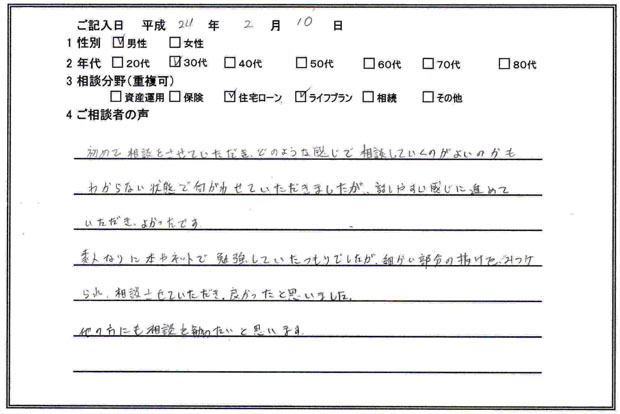 ご記入日 平成 24 年 2 月 10 日
1 性別 ☑男性 □女性
2 年代 □20代 ☑30代 □40代 □50代 □60代 □70代 □80代
3 相談分野(重複可)
□資産運用 □保険 ☑住宅ローン ☑ライフプラン □相続 □その他
4 ご相談者の声
初めて相談をさせていただき、どのような感じで相談していくのがよいのかも
わからない状態で伺わせていただきましたが、話しやすい感じに進めて
いただき、よかったです。
素人なりに本やネットで勉強していたつもりでしたが、細かい部分の抜けが、みつけ
られ、相談させていただき、良かったと思いました。
他の方にも相談を勧めたいと思います。